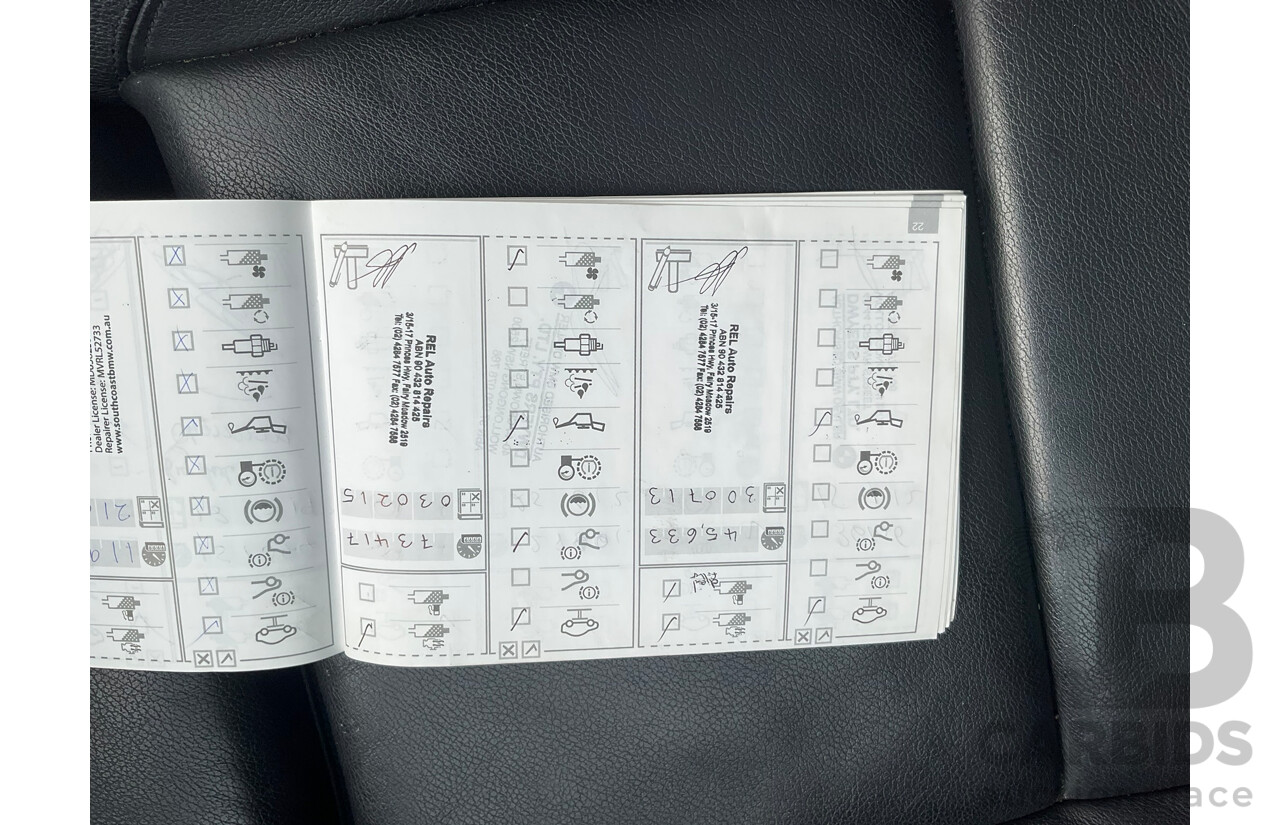 22
REL Auto Repairs
ABN 90 432 814 425
3/15-17 Princes Hwy, Fairy Meadow 2519
Tel: (02) 4284 7577 Fax: (02) 4284 7588
300713
45,633
REL Auto Repairs
ABN 90 432 814 425
3/15-17 Princes Hwy, Fairy Meadow 2519
Tel: (02) 4284 7577 Fax: (02) 4284 7588
030215
73417
Dealer License:
Repairer License: MVRL52733
www.southcoastbmw.com.au
CARBIDS